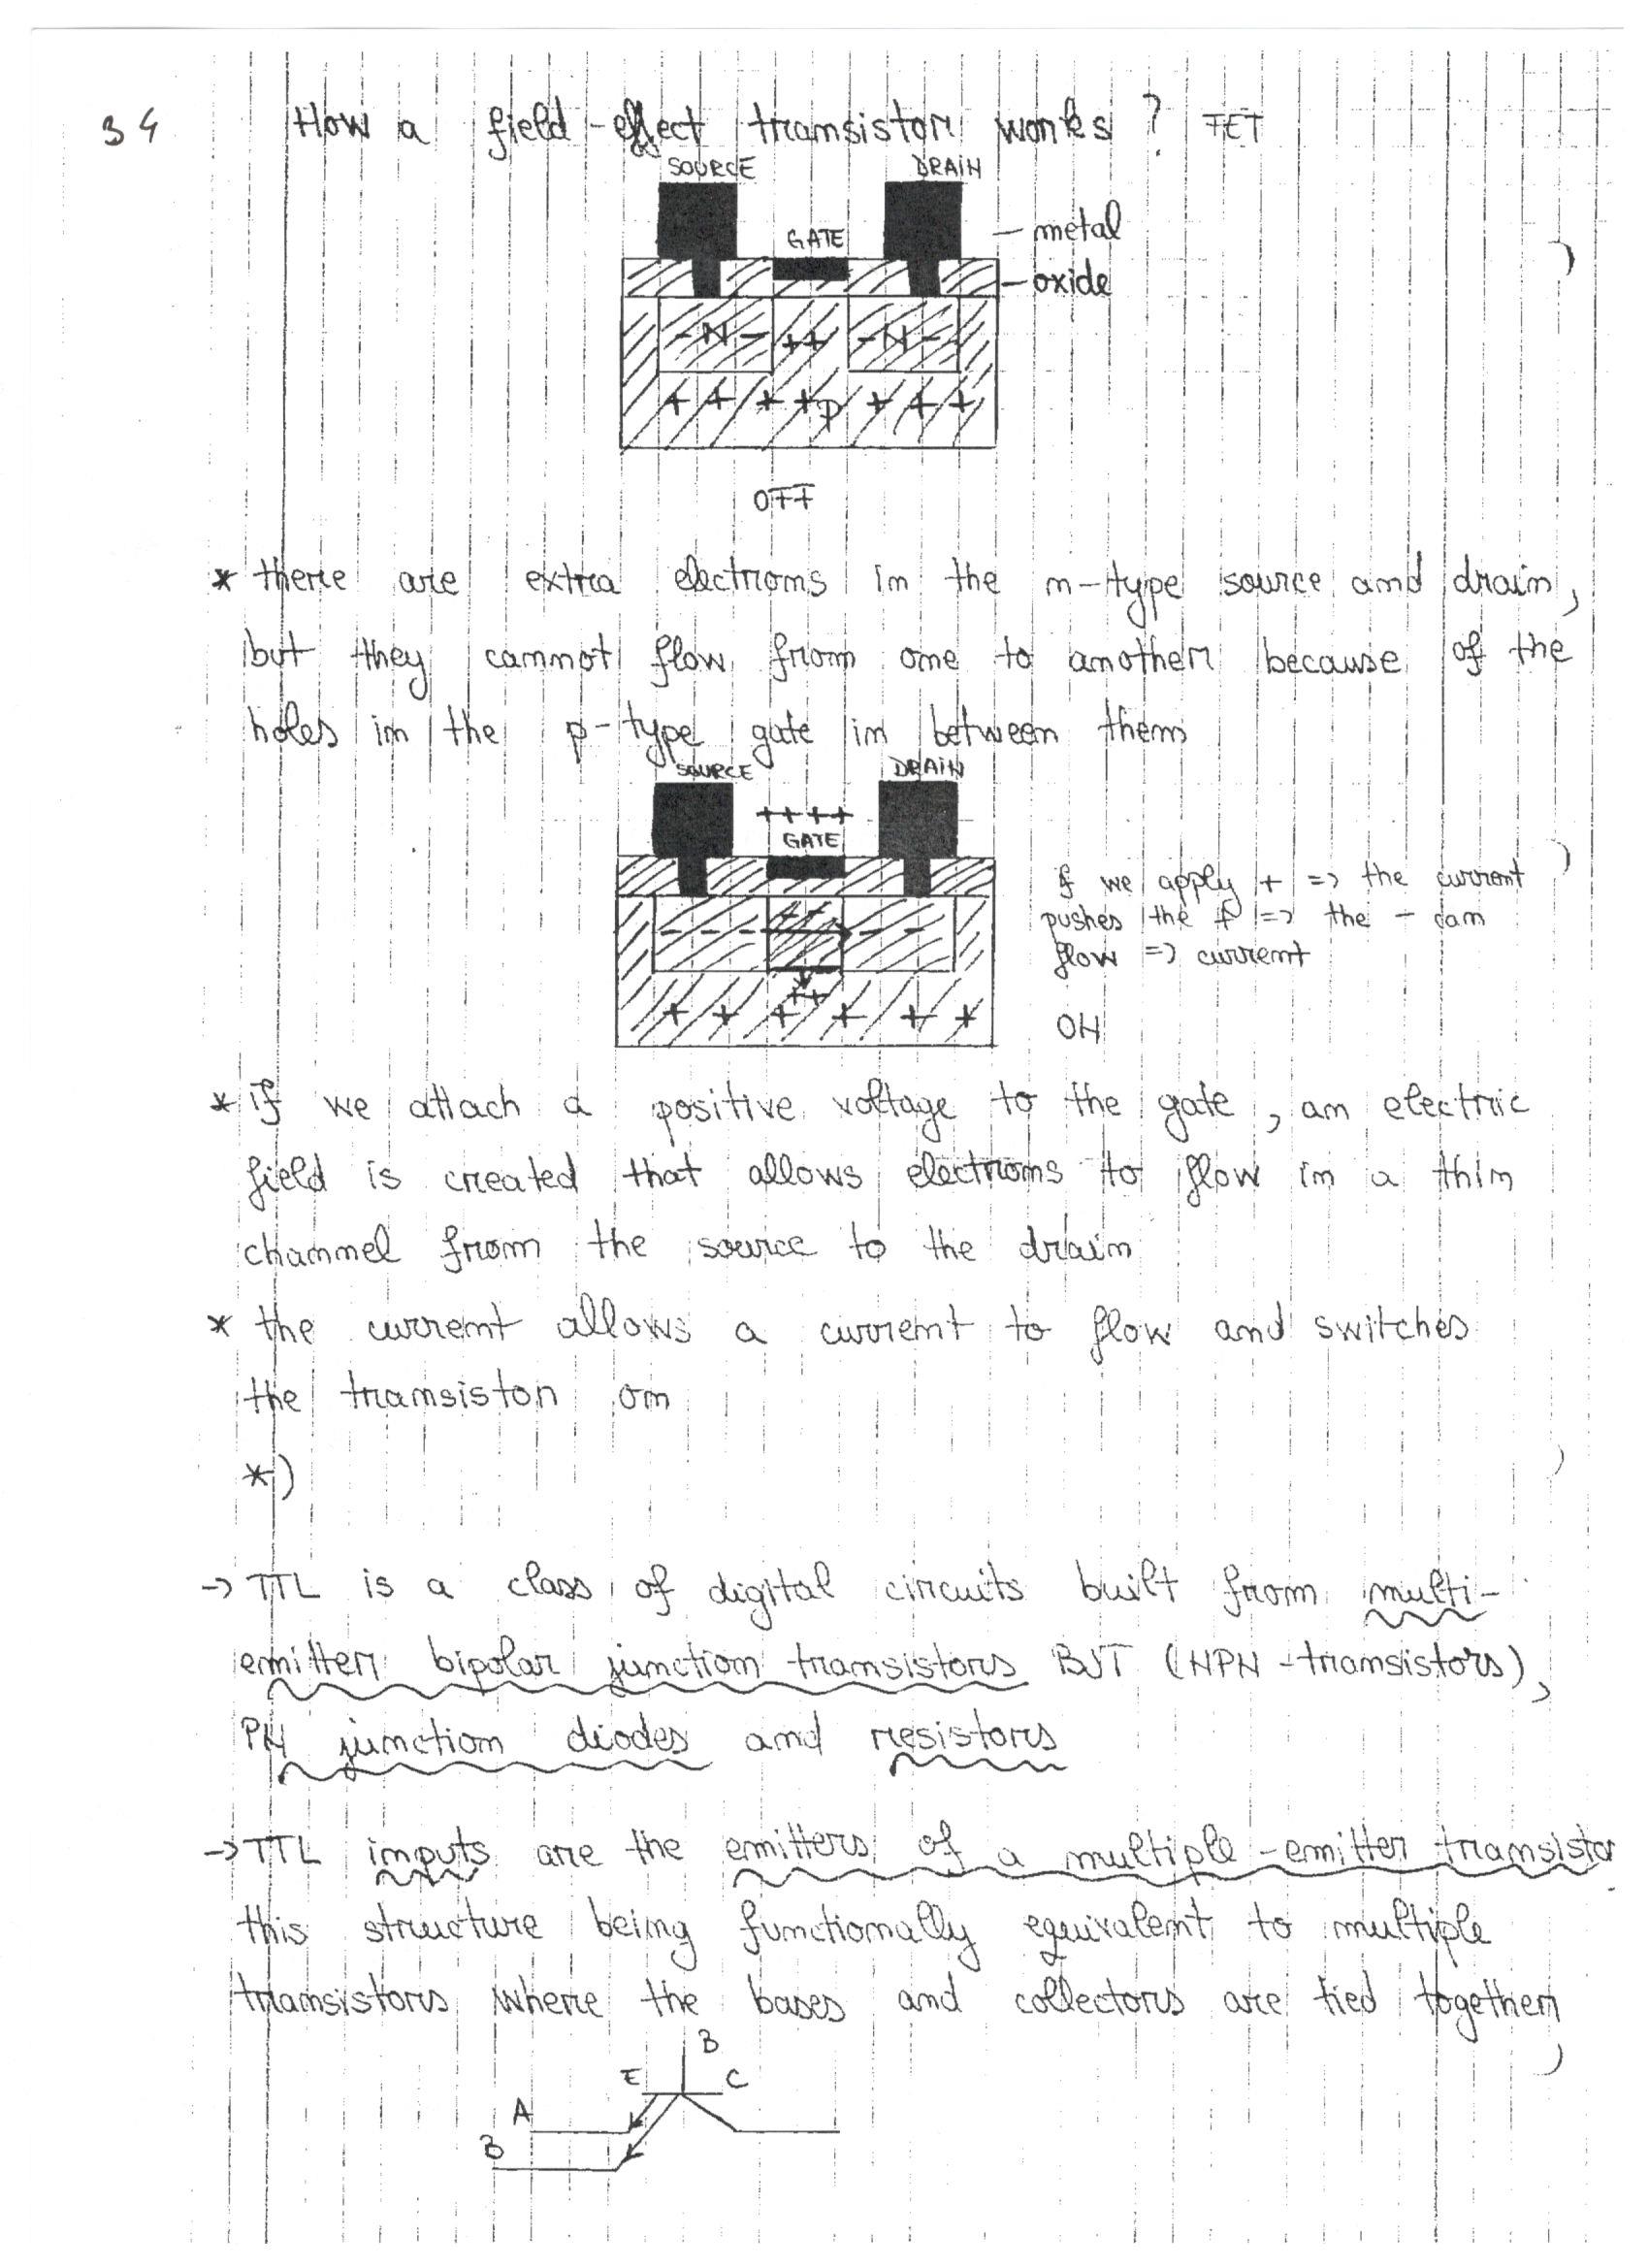 34 How a field-effect transistor works? FET
SOURCE DRAIN
GATE
metal
oxide
- N - ++ - N -
+ + + + P + + +
OFF
* there are extra electrons in the n-type source and drain,
but they cannot flow from one to another because of the
holes in the p-type gate in between them
SOURCE DRAIN
++++
GATE
if we apply + => the current
pushes the + => the - can
flow => current
- - - - -
++
+ + + + + +
ON
* if we attach a positive voltage to the gate, an electric
field is created that allows electrons to flow in a thin
channel from the source to the drain
* the current allows a current to flow and switches
the transistor on
*)
-> TTL is a class of digital circuits built from multi-
emitter bipolar junction transistors BJT (NPN-transistors),
PN junction diodes and resistors
-> TTL inputs are the emitters of a multiple-emitter transistor
this structure being functionally equivalent to multiple
transistors where the bases and collectors are tied together
B
E C
A
B